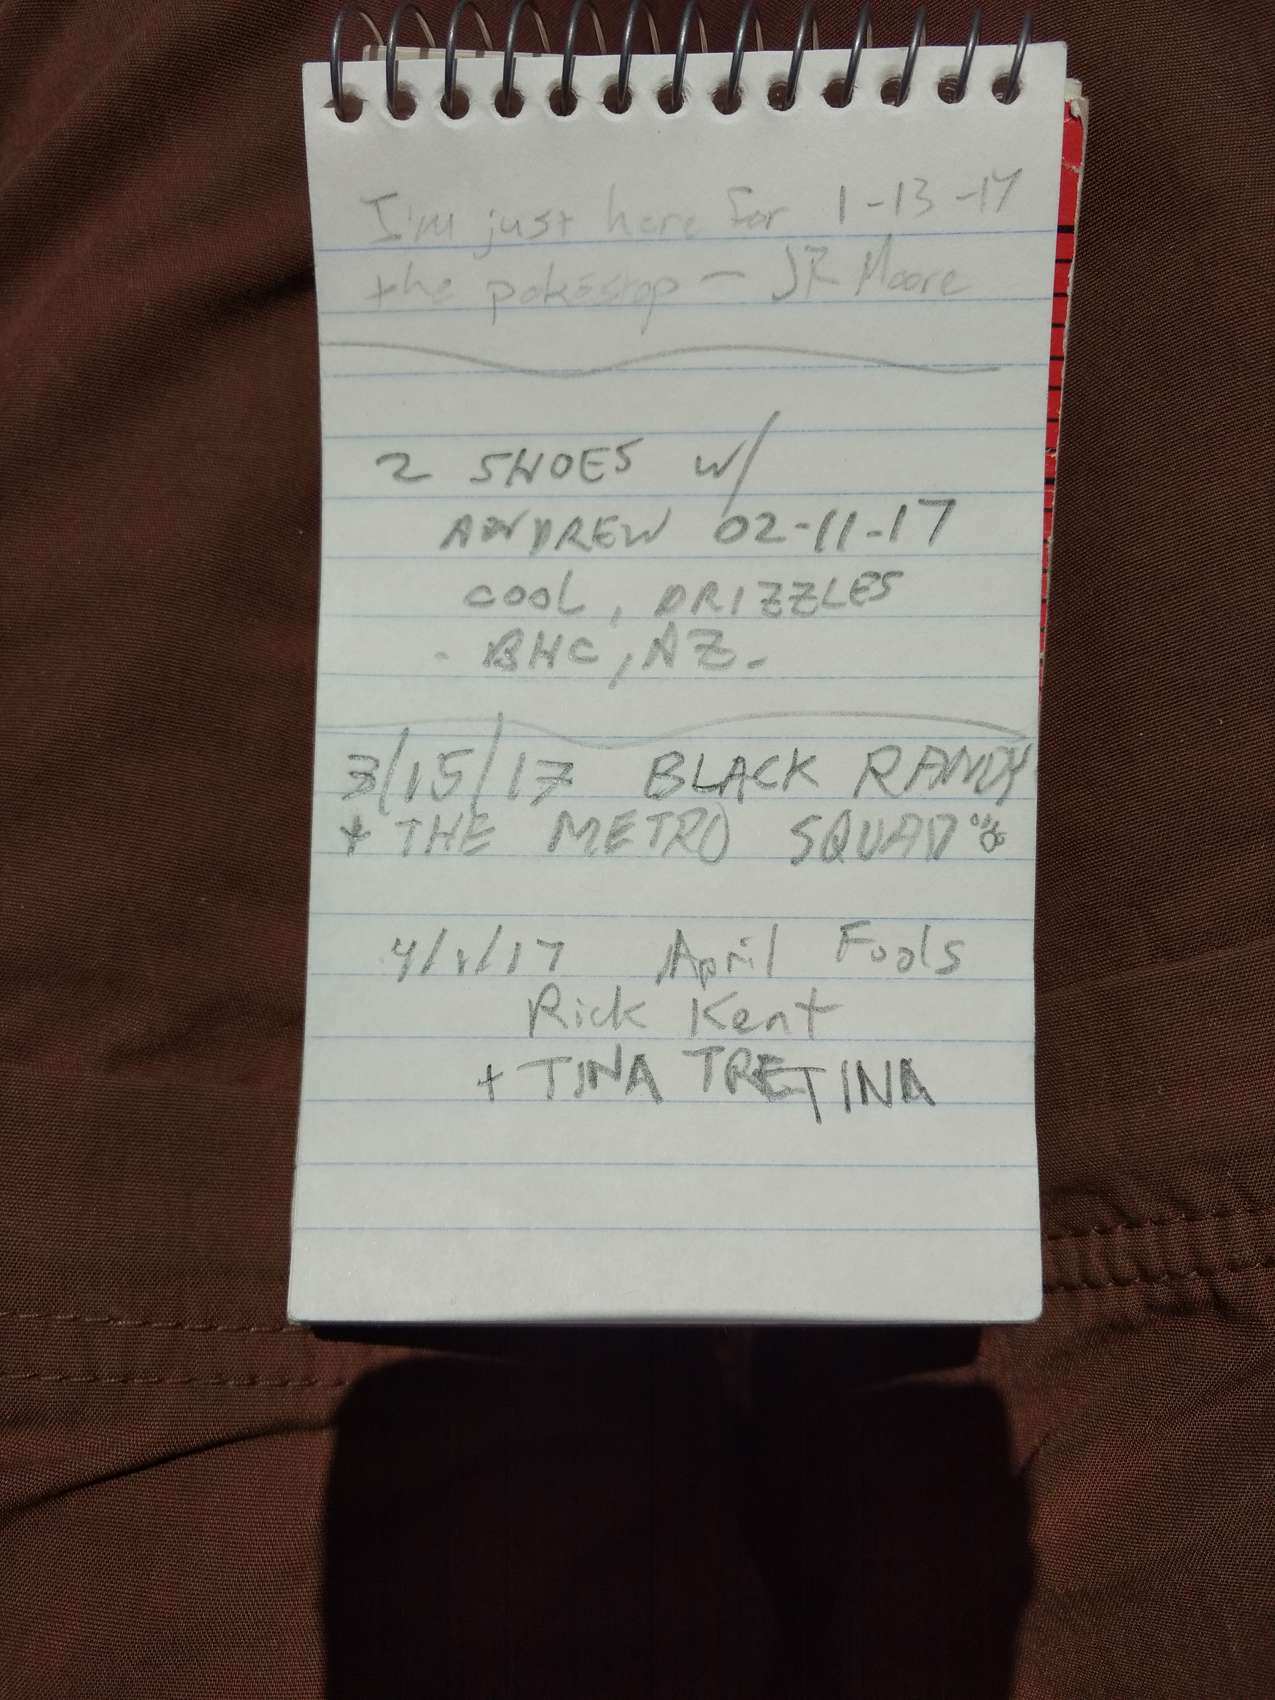 I'm just here for 1-13-17
the pokéstop - JR Moore
2 SHOES w/
ANDREW 02-11-17
COOL, DRIZZLES
- BHC, AZ -
3/15/17 BLACK RANDY
+ THE METRO SQUAD
4/1/17 April Fools
Rick Kent
+ TINA TRETINA